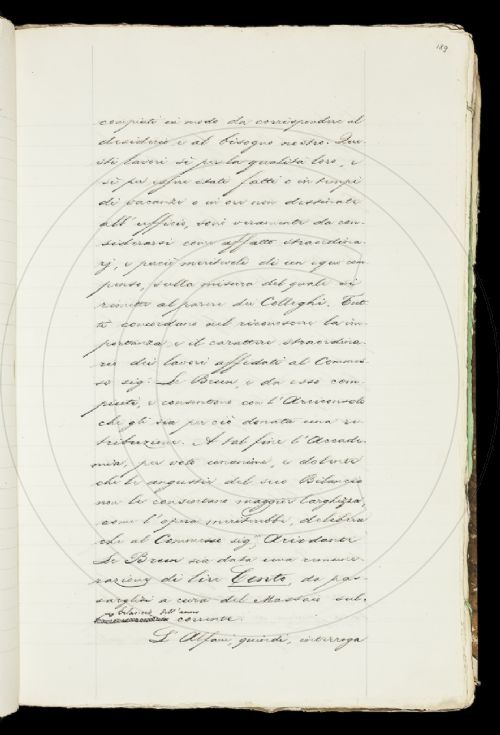 189
compiuti in modo da corrispondere al
desiderio e al bisogno nostro. Que-
sti lavori sì per la qualità loro, e
sì per essere stati fatti o in tempi
di vacanze o in ore non destinate
all' ufficio, sono veramente da con-
siderarsi come affatto straordina-
rj, e perciò meritevoli di un equo com-
penso, sulla misura del quale si
rimette al parere dei Colleghi. Tut-
ti concordano nel riconoscere la im-
portanza e il carattere straordina-
rio dei lavori affidati al Commes-
so sig: Le Brun, e da esso com-
piuti, e consentono con l'Arciconsolo
che gli sia per ciò donata una re-
tribuzione. A tal fine l'Accade-
mia, per voto unanime, e dolente
che le angustie del suo Bilancio
non le consentano maggior larghezza,
come l'opera meriterebbe, delibera
che al Commesso sig.
Le Brun sia data una remune-
razione di lire Cento, da pa-
garglisi a cura del Massaio sul
bilancio dell'anno
corrente.
L'Alfani, quindi, interroga